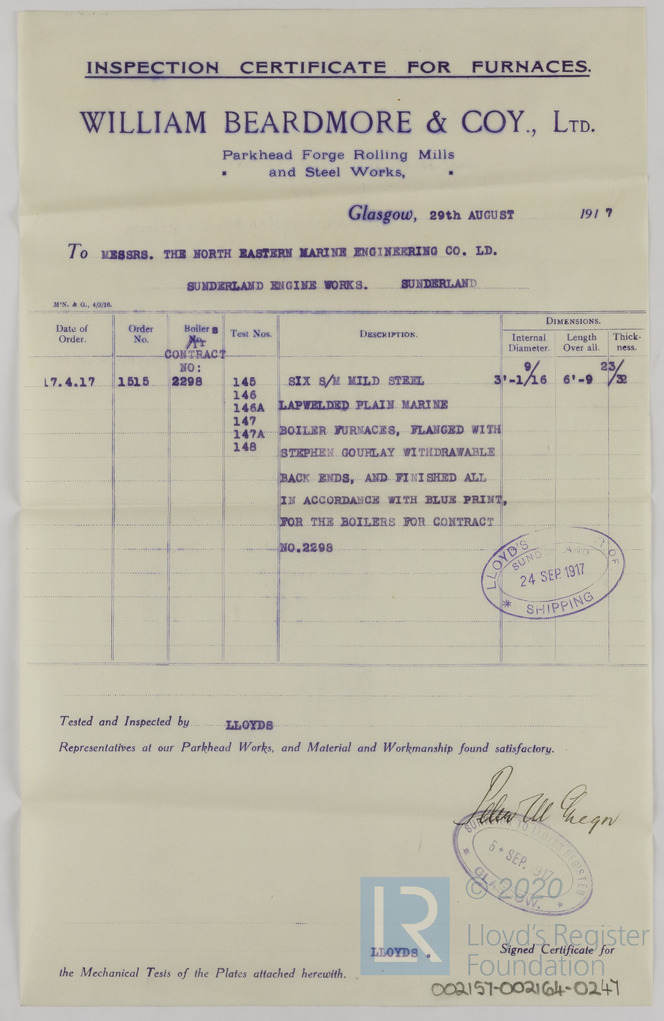 INSPECTION CERTIFICATE FOR FURNACES.
WILLIAM BEARDMORE & COY., LTD.
Parkhead Forge Rolling Mills
and Steel Works,
Glasgow, 29th AUGUST 1917
To MESSRS. THE NORTH EASTERN MARINE ENGINEERING CO. LD.
SUNDERLAND ENGINE WORKS. SUNDERLAND
M'N. & G., 4/9/16.
Date of Order.
Order No.
Boilers No.
CONTRACT NO:
Test Nos.
DESCRIPTION.
DIMENSIONS.
Internal Diameter.
Length Over all.
Thickness.
17.4.17 1515 2298 145 SIX S/M MILD STEEL 3'-1 9/16 6'-9 23/32
146
146A LAPWELDED PLAIN MARINE
147
147A BOILER FURNACES, FLANGED WITH
148 STEPHEN GOURLAY WITHDRAWABLE
BACK ENDS, AND FINISHED ALL
IN ACCORDANCE WITH BLUE PRINT,
FOR THE BOILERS FOR CONTRACT
NO.2298
LLOYD'S OF
24 SEP. 1917
SHIPPING
Tested and Inspected by LLOYDS
Representatives at our Parkhead Works, and Material and Workmanship found satisfactory.
SURVEYOR TO LLOYD'S REGISTER
6 * SEP. 1917
GLASGOW.
© 2020
LR
Lloyd's Register
Foundation
LLOYDS. Signed Certificate for
the Mechanical Tests of the Plates attached herewith.
002157-002164-0247